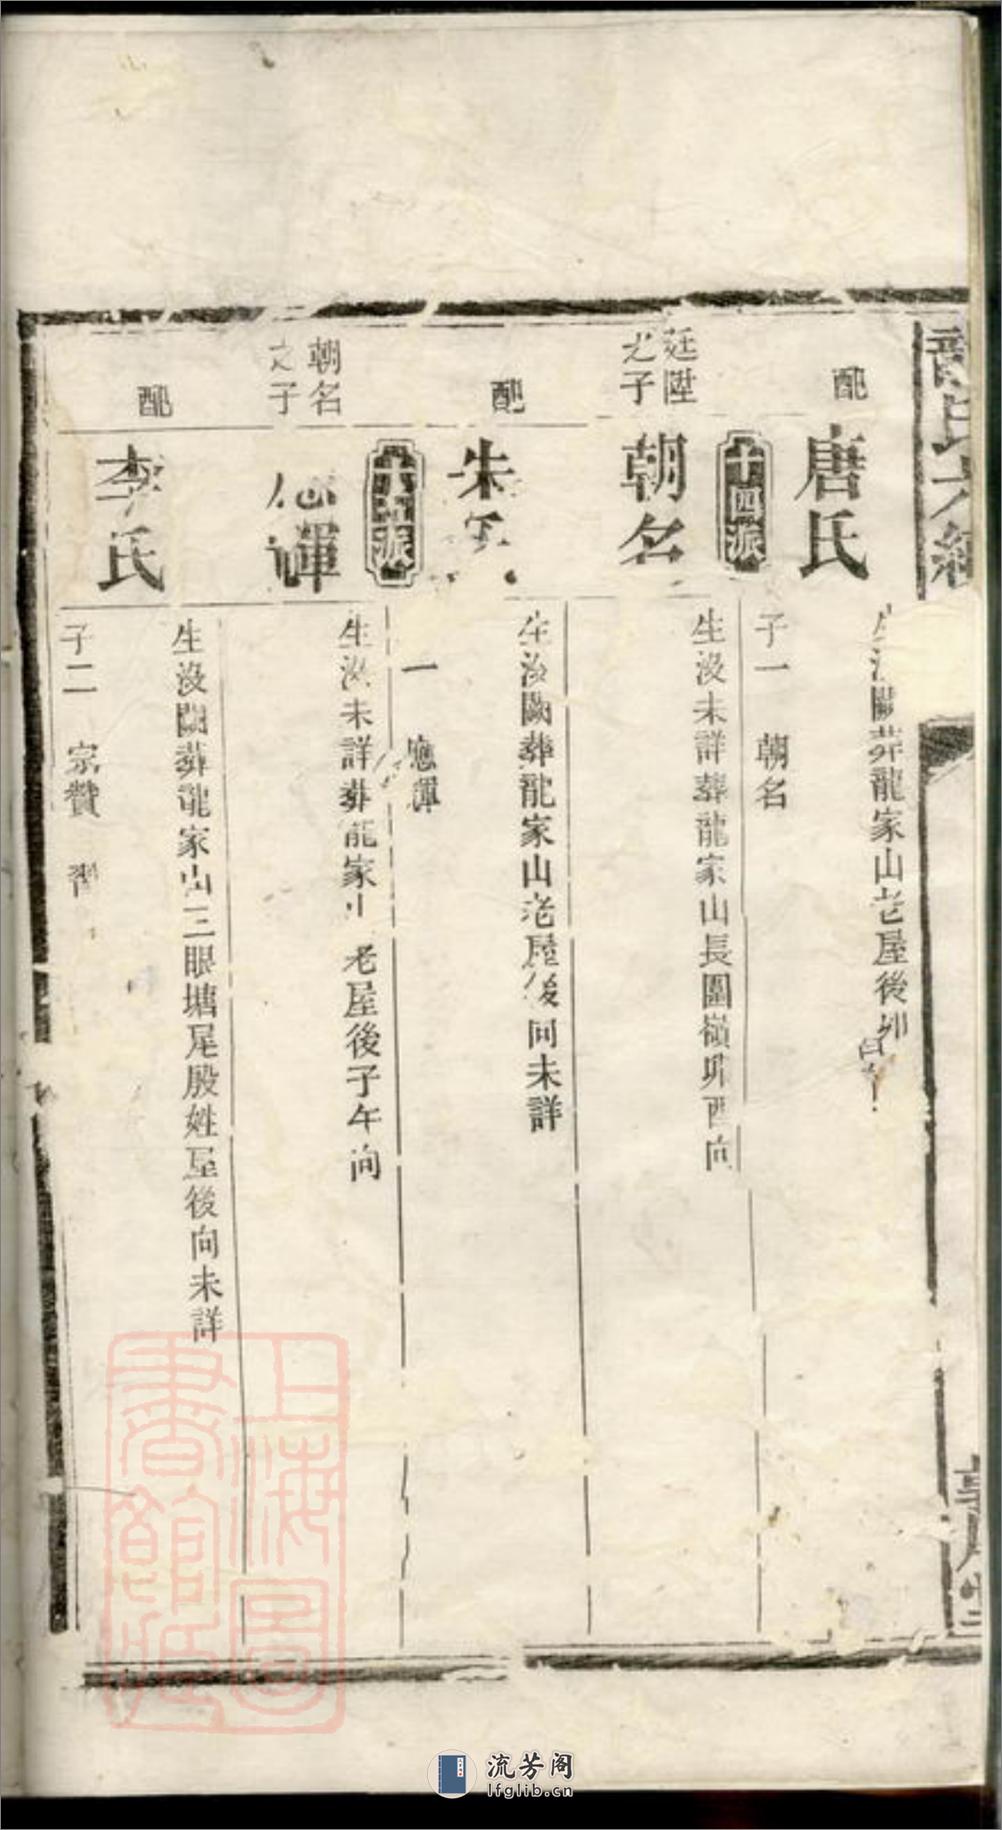 龍氏六經
配
唐氏
生沒闕葬龍家山老屋後卯
子一 朝名
十四派
廷陞
之子
朝名
生沒未詳葬龍家山長圍嶺卯酉向
配
朱氏
生沒闕葬龍家山老屋後向未詳
一 應輝
十五派
朝名
之子
應輝
生沒未詳葬龍家山老屋後子午向
配
李氏
生沒闕葬龍家山三眼塘尾殷姓屋後向未詳
子二 宗贊 習
上海圖書館藏
流芳阁
lfglib.cn